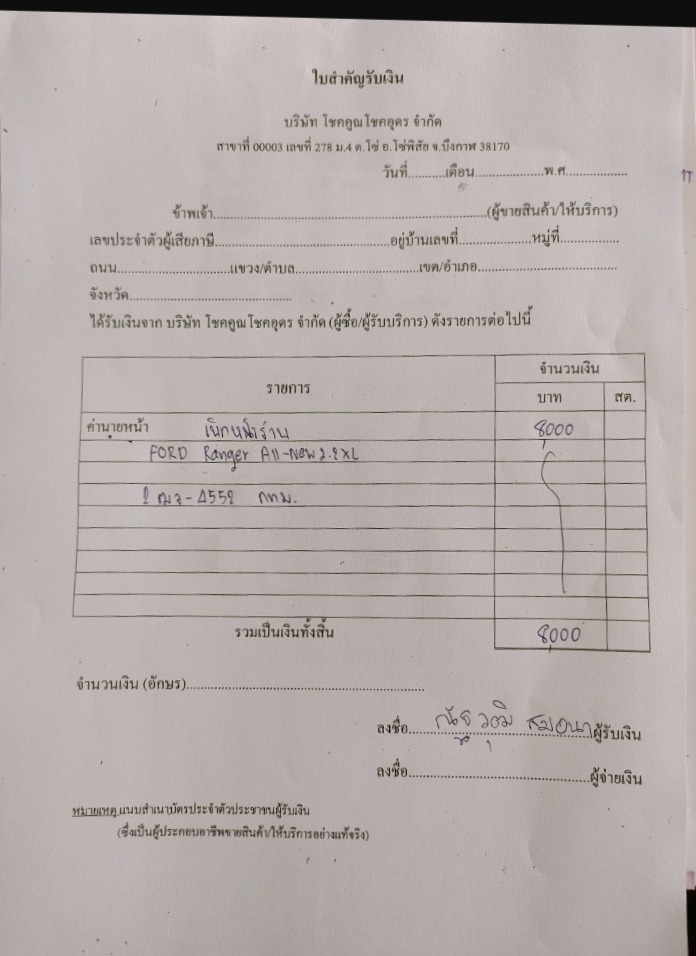 ใบสำคัญรับเงิน
บริษัท โชคคูณโชคอุดร จำกัด
สาขาที่ 00003 เลขที่ 278 ม.4 ต.โซ่ อ.โซ่พิสัย จ.บึงกาฬ 38170
วันที่..........เดือน...................พ.ศ.................
ข้าพเจ้า...........................................................................(ผู้ขายสินค้า/ให้บริการ)
เลขประจำตัวผู้เสียภาษี................................................อยู่บ้านเลขที่....................หมู่ที่................
ถนน...............................แขวง/ตำบล..................................เขต/อำเภอ......................................
จังหวัด.............................................
ได้รับเงินจาก บริษัท โชคคูณโชคอุดร จำกัด (ผู้ซื้อ/ผู้รับบริการ) ดังรายการต่อไปนี้
รายการ จำนวนเงิน
บาท สต.
ค่านายหน้า เบิกหน้าร้าน 8,000
FORD Ranger All-New 2.2 XL
2 ฒฉ-4552 กทม.
รวมเป็นเงินทั้งสิ้น 8,000
จำนวนเงิน (อักษร)..................................................................
ลงชื่อ ณัฐวุฒิ ผู้รับเงิน
ลงชื่อ..................................................ผู้จ่ายเงิน
หมายเหตุ แนบสำเนาบัตรประจำตัวประชาชนผู้รับเงิน
(ซึ่งเป็นผู้ประกอบอาชีพขายสินค้า/ให้บริการอย่างแท้จริง)